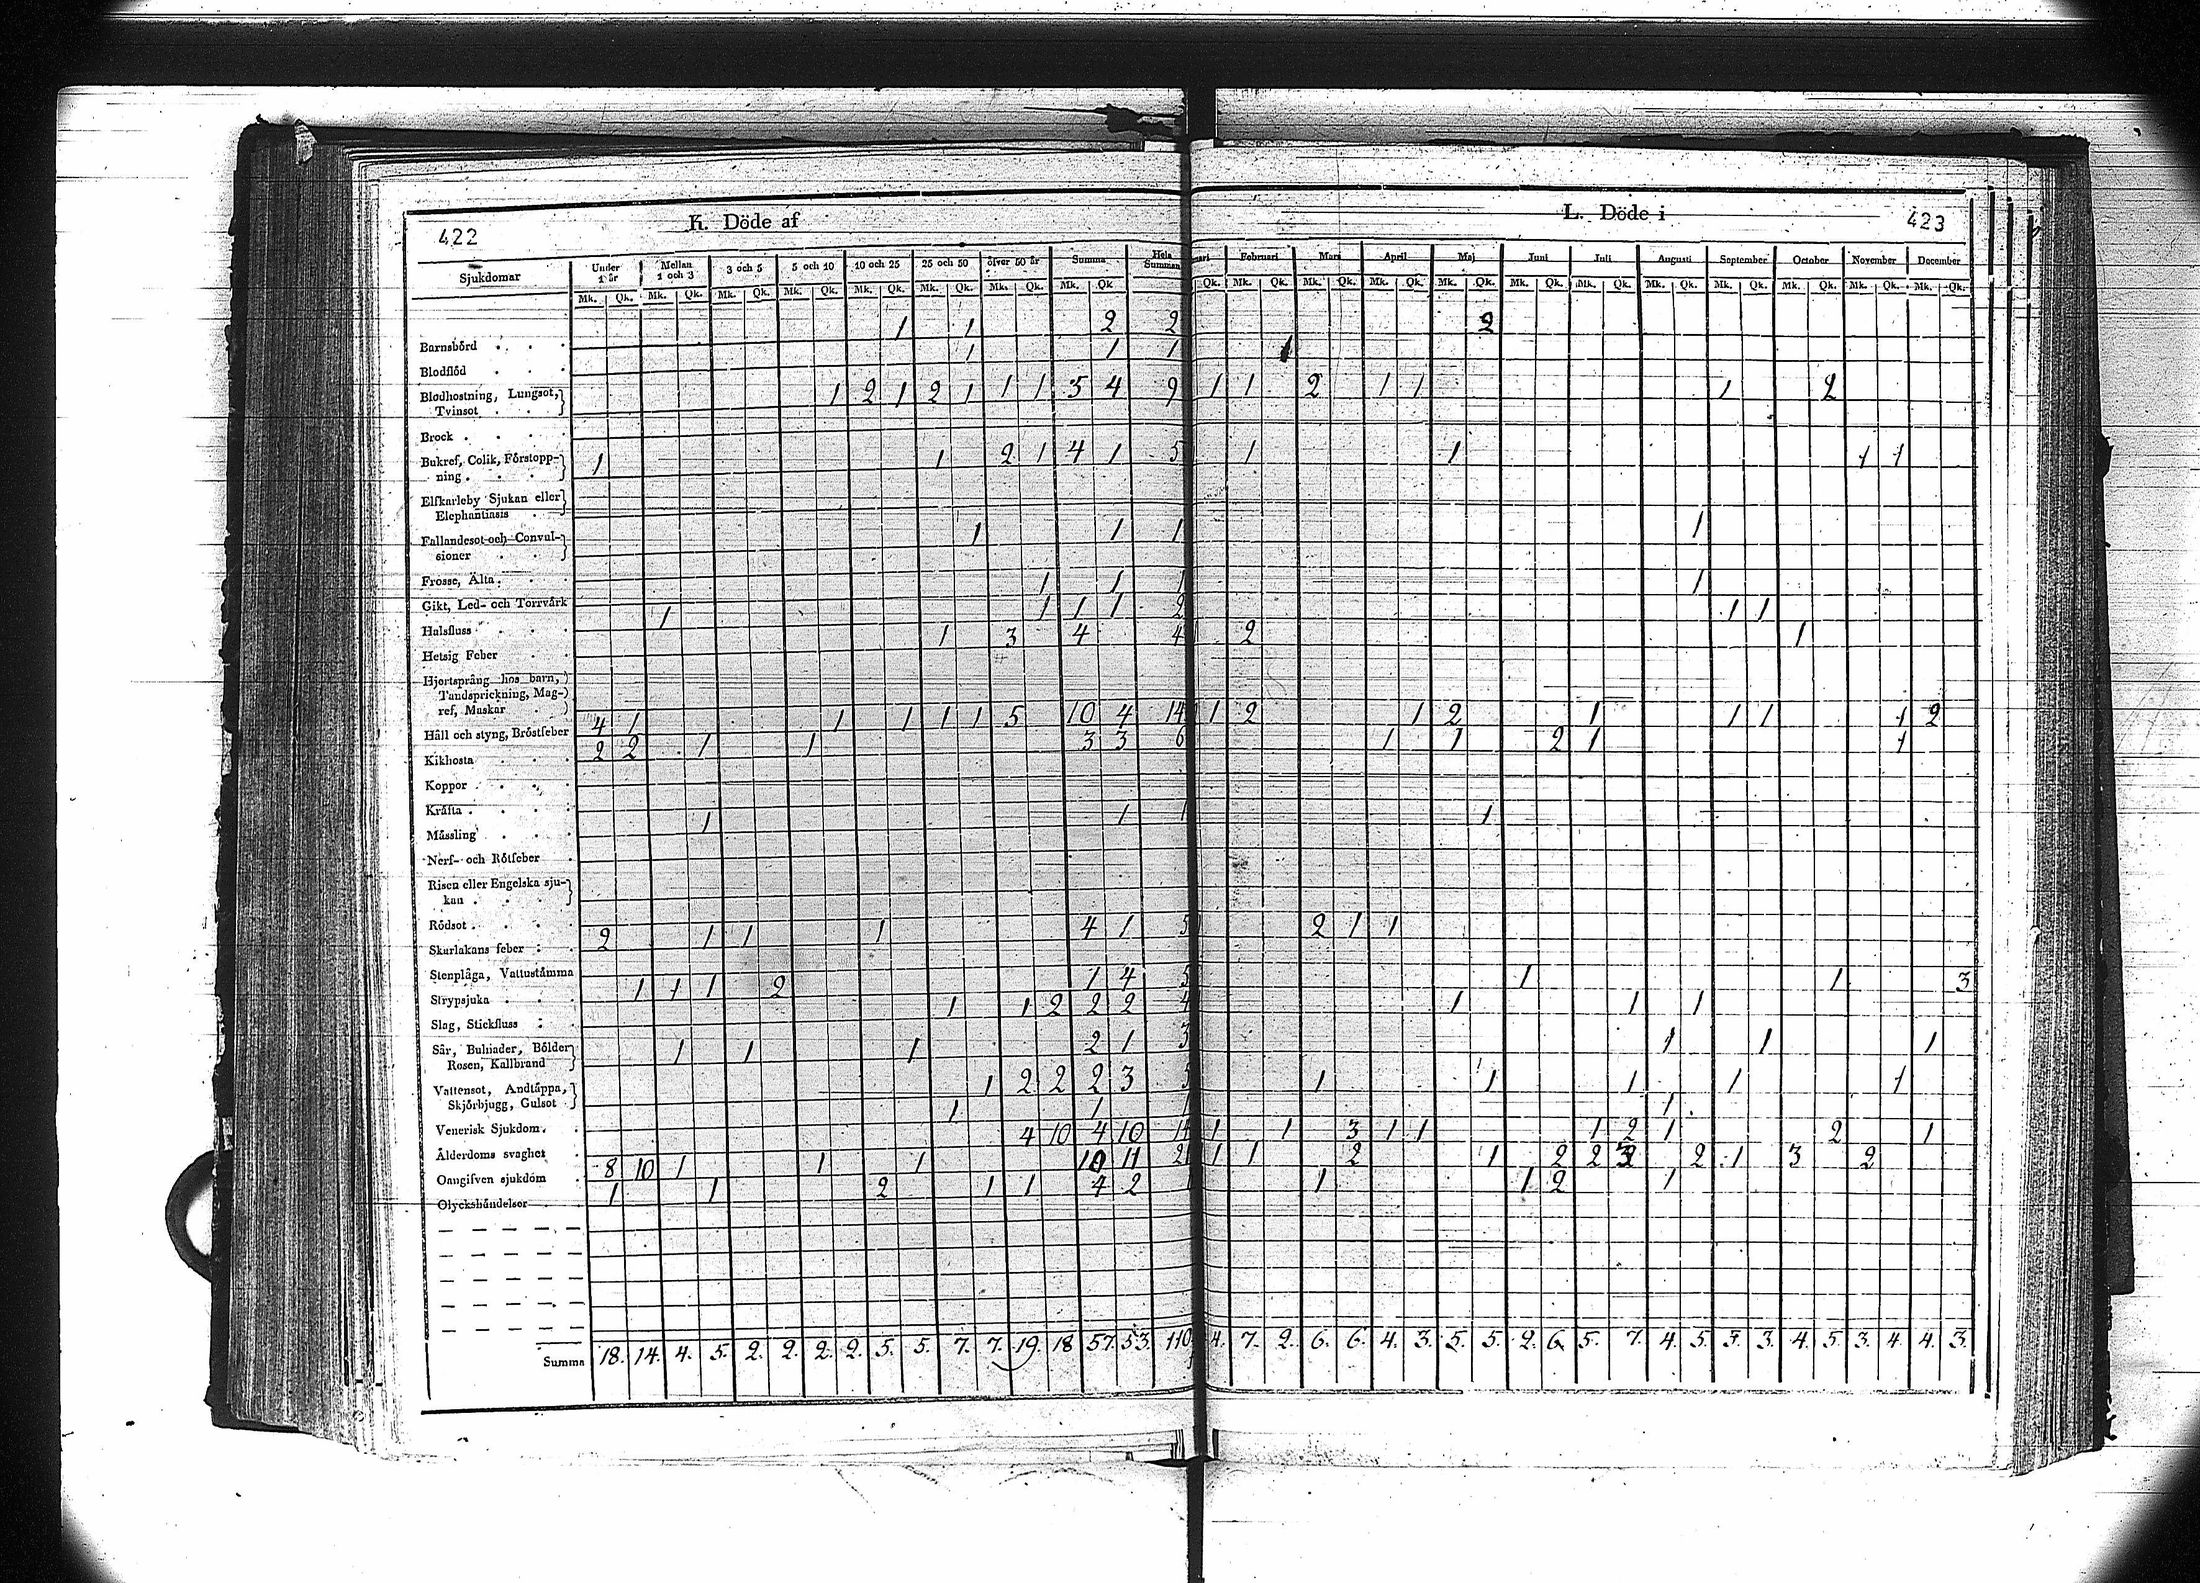 422 K. Döde af
L. Döde i 423
Sjukdomar Under 1 år Mellan 1 och 3 3 och 5 5 och 10 10 och 25 25 och 50 öfver 50 år Summa Hela Summan
Februari Mars April Maj Juni Juli Augusti September October November December
Mk. Qk. Mk. Qk. Mk. Qk. Mk. Qk. Mk. Qk. Mk. Qk. Mk. Qk. Mk. Qk
Qk. Mk. Qk. Mk. Qk. Mk. Qk. Mk. Qk. Mk. Qk. Mk. Qk. Mk. Qk. Mk. Qk. Mk. Qk. Mk. Qk. Mk. Qk.
Barnsbörd 1 1 2 2 2
Blodflöd 1 1 1 1
Blodhostning, Lungsot,
Tvinsot 1 2 1 2 1 1 1 5 4 9 1 1 2 1 1 1 2
Brock
Bukref, Colik, Förstopp-
ning 1 1 2 1 4 1 5 1 1 1 1
Elfkarleby Sjukan eller
Elephantiasis
Fallandesot och Convul-
sioner 1 1 1 1
Frosse, Älta 1 1 1 1
Gikt, Led- och Torrvärk
Halsfluss 1 1 1 1 2 1 1
Hetsig Feber 1 3 4 4 2 1
Hjortsprång hos barn,
Tandsprickning, Mag-
ref, Maskar
Håll och styng, Bröstfeber 4 1 1 1 1 1 5 10 4 14 1 2 1 2 1 1 1 1 2
Kikhosta 2 2 1 1 3 3 6 1 1 2 1 1
Koppor
Kräfta
Mässling 1 1 1 1
Nerf- och Rötfeber
Risen eller Engelska sju-
kan
Rödsot
Skarlakans feber 2 1 1 1 4 1 5 2 1 1
Stenplåga, Vattustämma
Strypsjuka 1 1 1 2 1 4 5 1 1 3
Slag, Stickfluss 1 1 2 2 2 4 1 1 1
Sår, Bulnader, Bölder
Rosen, Kallbrand 1 1 1 2 1 3 1 1 1
Vattensot, Andtäppa,
Skjörbjugg, Gulsot 1 2 2 2 3 5 1 1 1 1 1
Venerisk Sjukdom 1 1 1 1
Ålderdoms svaghet 4 10 4 10 14 1 1 3 1 1 1 2 1 2 1
Oangifven sjukdom 8 10 1 1 1 10 11 2 1 1 2 1 2 2 2 1 3 2
Olyckshändelser 1 1 2 1 1 4 2 1 1 2 1
Summa 18. 14. 4. 5. 2. 2. 2. 2. 5. 5. 7. 7. 19. 18 57. 53. 110 4. 7. 2. 6. 6. 4. 3. 5. 5. 2. 6. 5. 7. 4. 5. 3. 3. 4. 5. 3. 4. 4. 3.